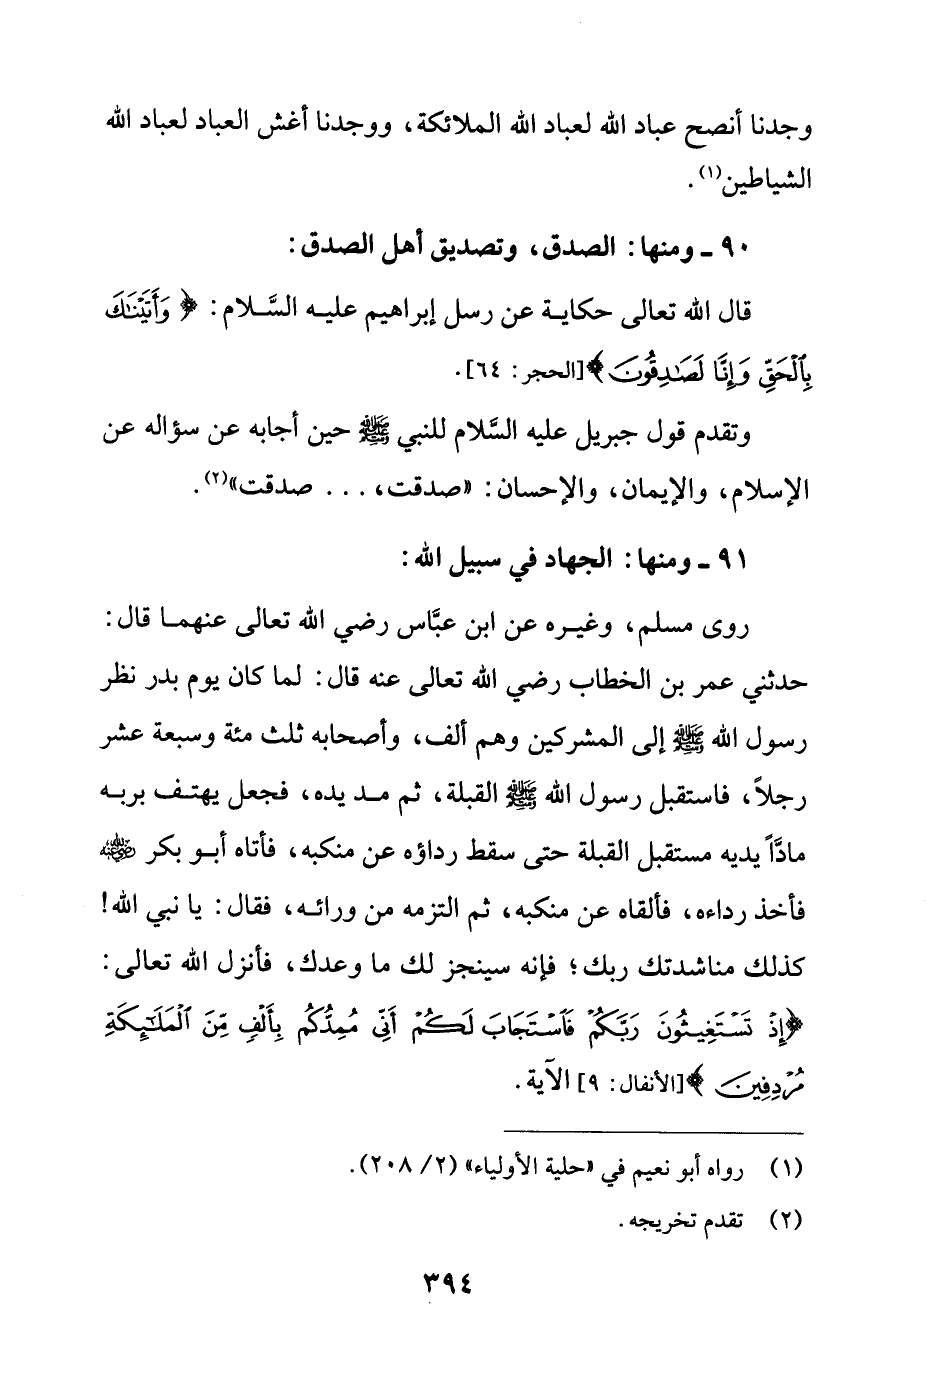 وجدنا أنصح عباد الله لعباد الله الملائكة، ووجدنا أغش العباد لعباد الله
الشياطين(١).
٩٠ ـ ومنها: الصدق، وتصديق أهل الصدق:
قال الله تعالى حكاية عن رسل إبراهيم عليه السَّلام: ﴿وَأَتَيْنَٰكَ
بِٱلْحَقِّ وَإِنَّا لَصَٰدِقُونَ﴾[الحجر: ٦٤].
وتقدم قول جبريل عليه السَّلام للنبي ﷺ حين أجابه عن سؤاله عن
الإسلام، والإيمان، والإحسان: «صدقت، ... صدقت»(٢).
٩١ ـ ومنها: الجهاد في سبيل الله:
روى مسلم، وغيره عن ابن عبَّاس رضي الله تعالى عنهما قال:
حدثني عمر بن الخطاب رضي الله تعالى عنه قال: لما كان يوم بدر نظر
رسول الله ﷺ إلى المشركين وهم ألف، وأصحابه ثلث مئة وسبعة عشر
رجلاً، فاستقبل رسول الله ﷺ القبلة، ثم مد يده، فجعل يهتف بربه
مادَّاً يديه مستقبل القبلة حتى سقط رداؤه عن منكبه، فأتاه أبو بكر رضي الله عنه
فأخذ رداءه، فألقاه عن منكبه، ثم التزمه من ورائه، فقال: يا نبي الله!
كذلك مناشدتك ربك؛ فإنه سينجز لك ما وعدك، فأنزل الله تعالى:
﴿إِذْ تَسْتَغِيثُونَ رَبَّكُمْ فَٱسْتَجَابَ لَكُمْ أَنِّى مُمِدُّكُم بِأَلْفٍ مِّنَ ٱلْمَلَٰٓئِكَةِ
مُرْدِفِينَ﴾[الأنفال: ٩] الآية.
(١) رواه أبو نعيم في «حلية الأولياء» (٢/ ٢٠٨).
(٢) تقدم تخريجه.
٣٩٤